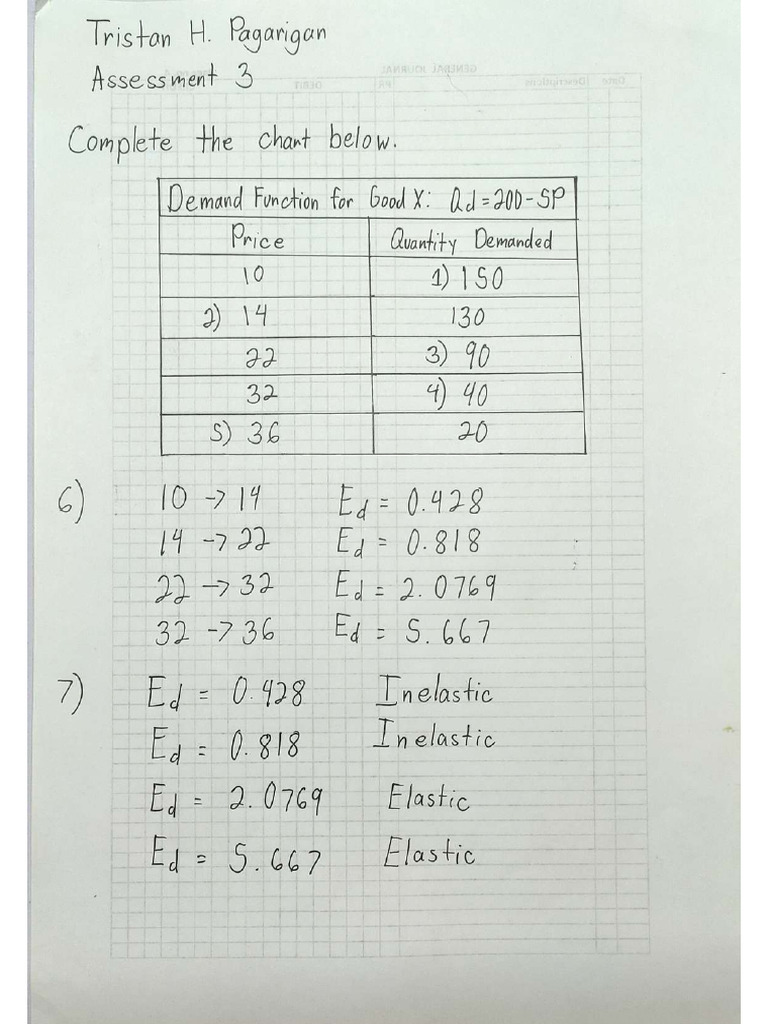 Tristan H. Pagarigan
Assessment 3
Complete the chart below.
Demand Function for Good X: Qd = 200 - 5P
Price Quantity Demanded
10 1) 150
2) 14 130
22 3) 90
32 4) 40
5) 36 20
6) 10 → 14 Ed = 0.428
14 → 22 Ed = 0.818
22 → 32 Ed = 2.0769
32 → 36 Ed = 5.667
7) Ed = 0.428 Inelastic
Ed = 0.818 Inelastic
Ed = 2.0769 Elastic
Ed = 5.667 Elastic